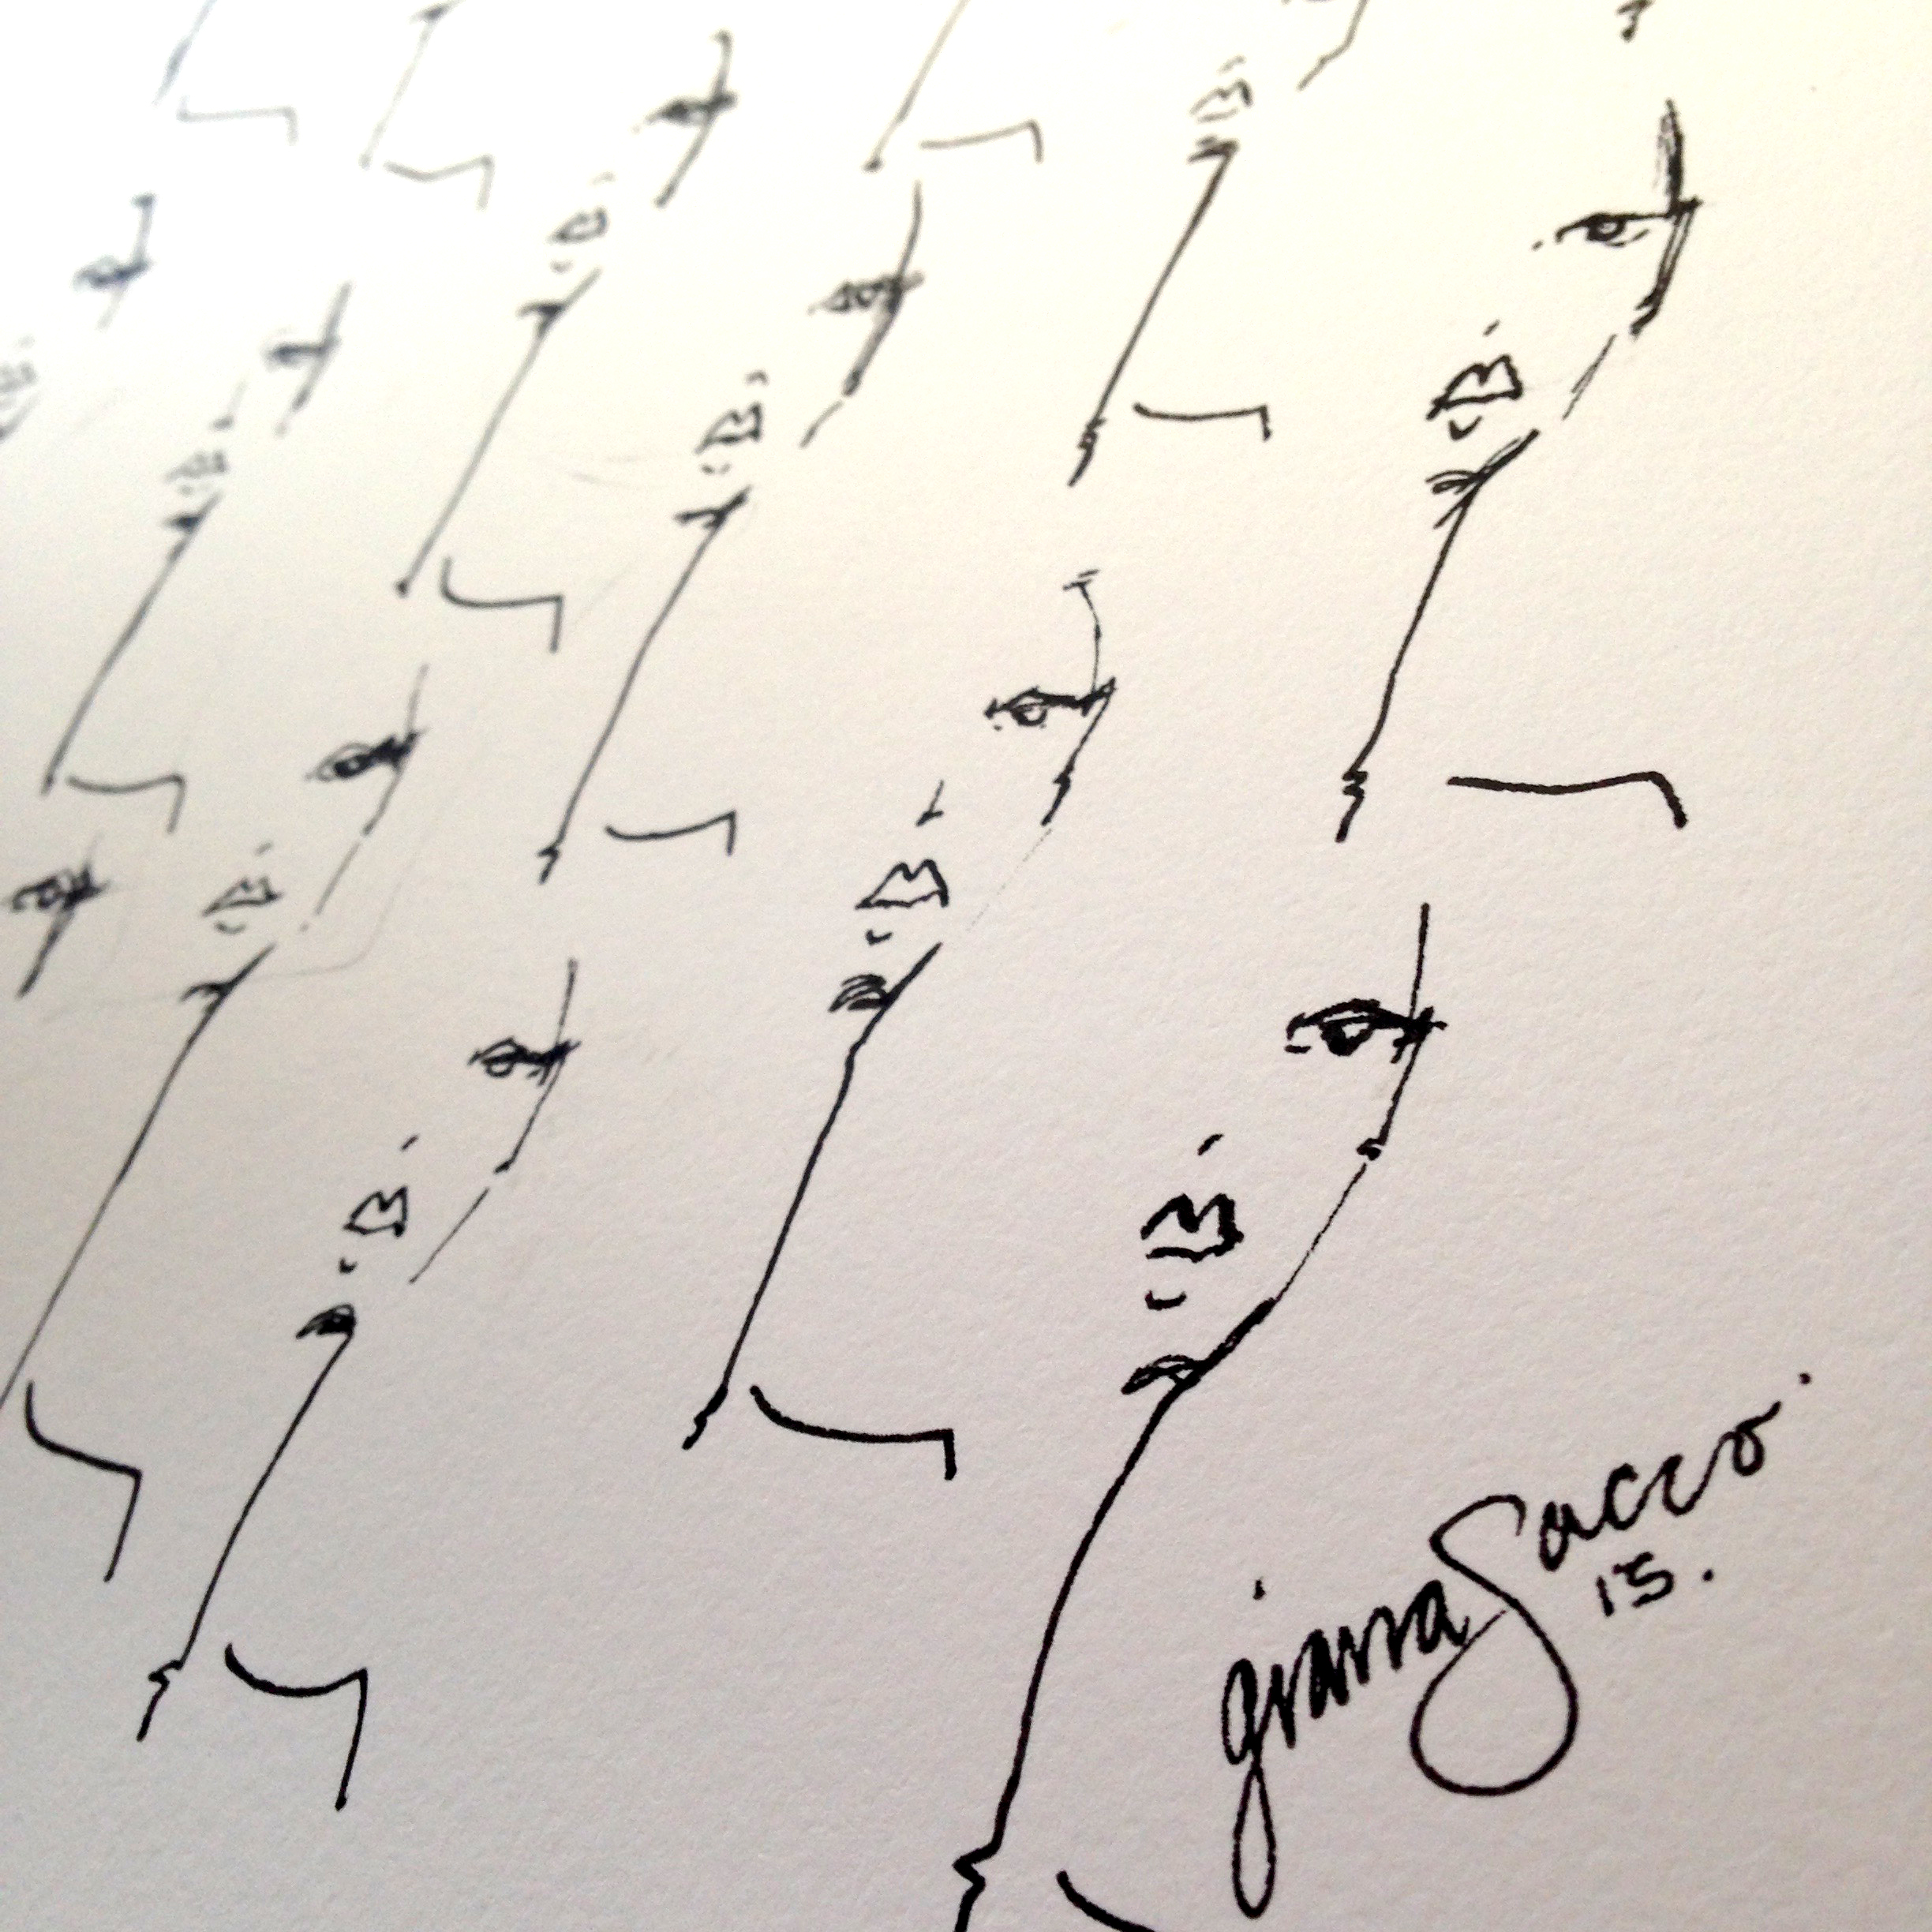 gianna Sacco.
15.